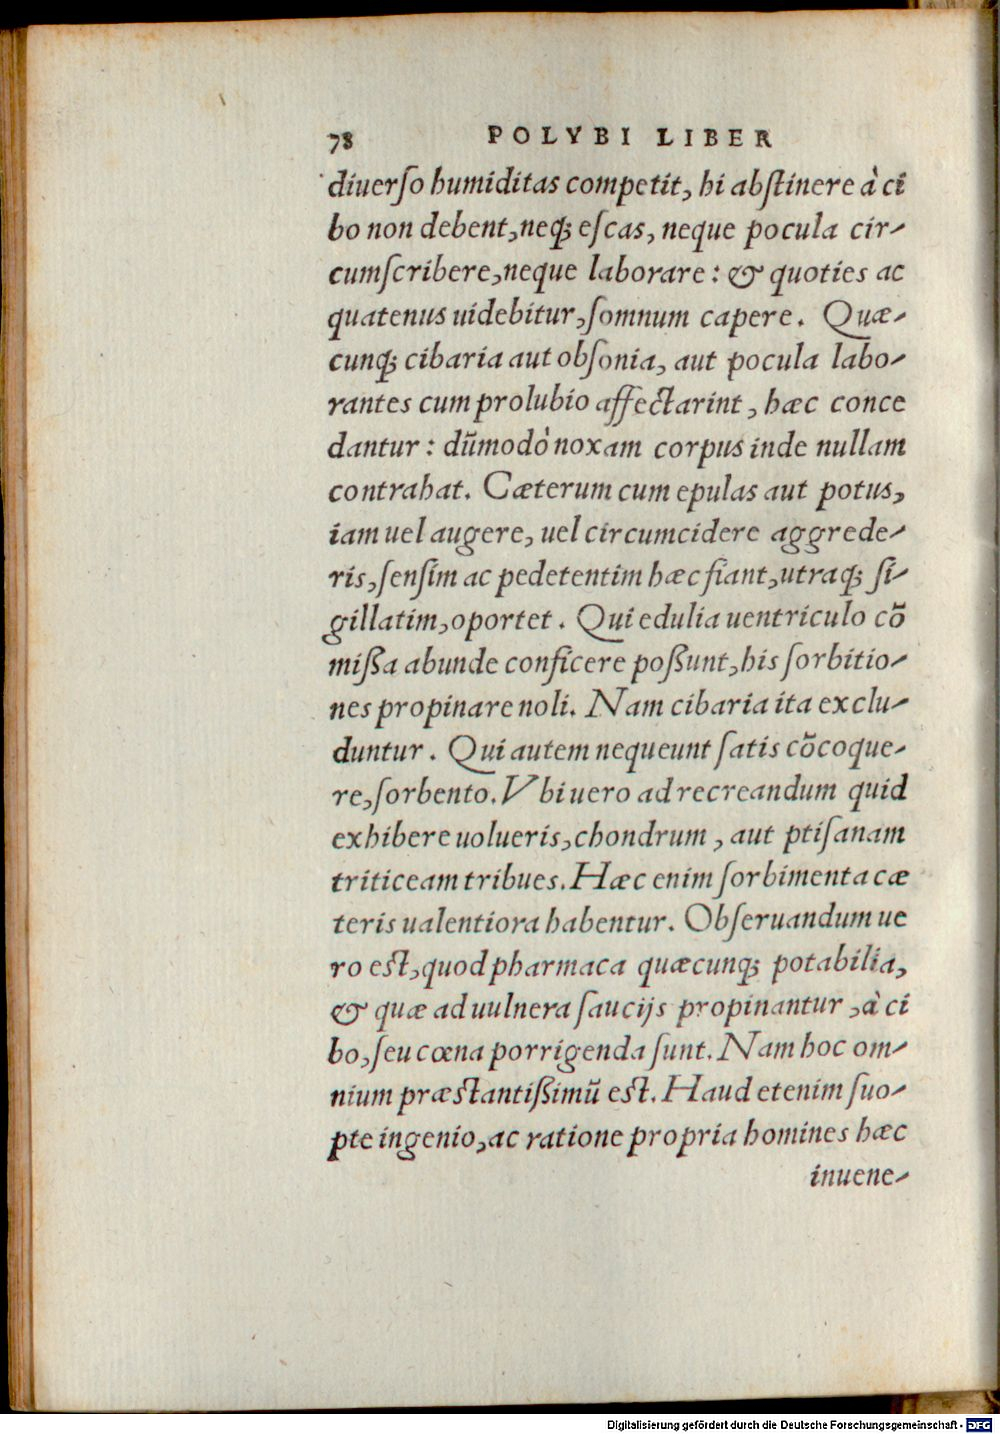 78 POLYBI LIBER
diuerſo humiditas competit, hi abſtinere à ci
bo non debent, neq; eſcas, neque pocula cir-
cumſcribere, neque laborare: & quoties ac
quatenus uidebitur, ſomnum capere. Quæ-
cunq; cibaria aut obſonia, aut pocula labo-
rantes cum prolubio affectarint, hæc conce
dantur: dũmodò noxam corpus inde nullam
contrahat. Cæterum cum epulas aut potus,
iam uel augere, uel circumcidere aggrede-
ris, ſenſim ac pedetentim hæc fiant, utraq; ſi-
gillatim, oportet. Qui edulia uentriculo cõ
miſſa abunde conficere poſſunt, his ſorbitio-
nes propinare noli. Nam cibaria ita exclu-
duntur. Qui autem nequeunt ſatis cõcoque-
re, ſorbento. Vbi uero ad recreandum quid
exhibere uolueris, chondrum, aut ptiſanam
triticeam tribues. Hæc enim ſorbimenta cæ
teris ualentiora habentur. Obſeruandum ue
ro eſt, quod pharmaca quæcunq; potabilia,
& quæ ad uulnera ſaucijs propinantur, à ci
bo, ſeu cœna porrigenda ſunt. Nam hoc om-
nium præſtantiſſimũ eſt. Haud etenim ſuo-
pte ingenio, ac ratione propria homines hæc
inuene-
Digitalisierung gefördert durch die Deutsche Forschungsgemeinschaft - DFG